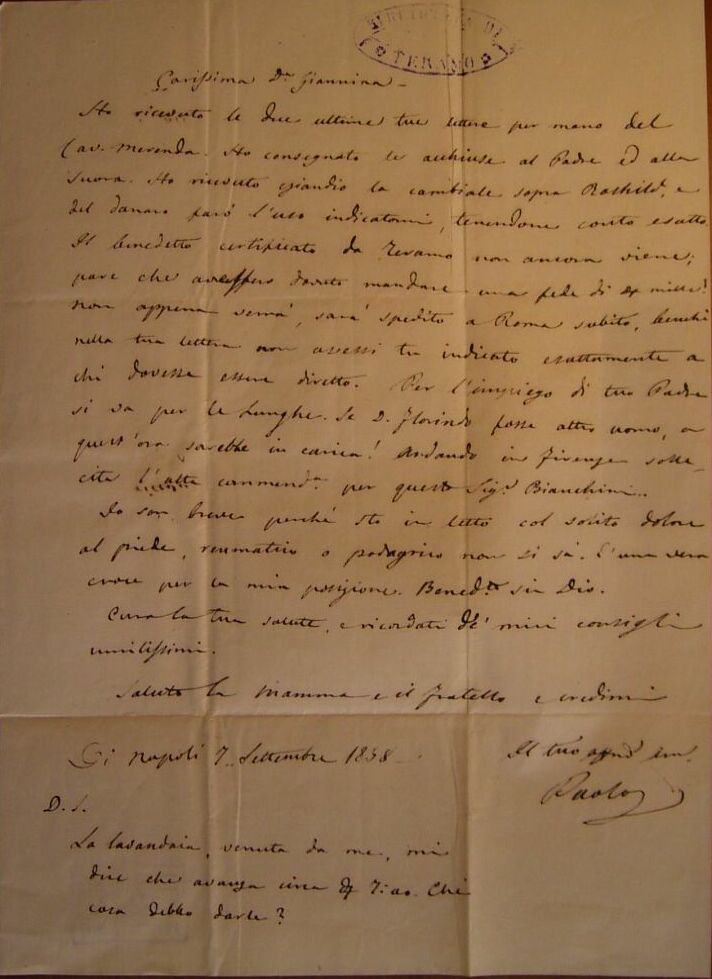 BIBLIOTECA DI
TERAMO
Carissima D.a Giannina
Ho ricevuto le due ultime tue lettere per mano del
Cav. Merenda. Ho consegnato le acchiuse al Padre ed alla
Suora. Ho ricevuto eziandio la cambiale sopra Rothild, e
del danaro farò l'uso indicatomi, tenendone conto esatto.
Il benedetto certificato da Teramo non ancora viene;
pare che avessero dovuto mandare una fede di
non appena verrà, sarà spedito a Roma subito, benchè
nella tua lettera non avessi tu indicato esattamente a
chi dovesse essere diretto. Per l'impiego di tuo Padre
si va per le lunghe. Se D. Florindo fosse altro uomo, a
quest'ora sarebbe in carica! Andando in Firenze solle-
cita l'alta commenda per questo Sig.r Bianchini.
Io son breve perchè sto in letto col solito dolore
al piede, reumatico o podagrico non si sà. È una vera
croce per la mia posizione. Bened.to sia Dio.
Cura la tua salute, e ricordati de' miei consigli
umilissimi.
Saluto la Mamma e il fratello e credimi
Di Napoli 7 Settembre 1858
Il tuo
Paolo
P. S.
La lavandaia, venuta da me, mi
dice che avanza circa Che
cosa debbo darle?